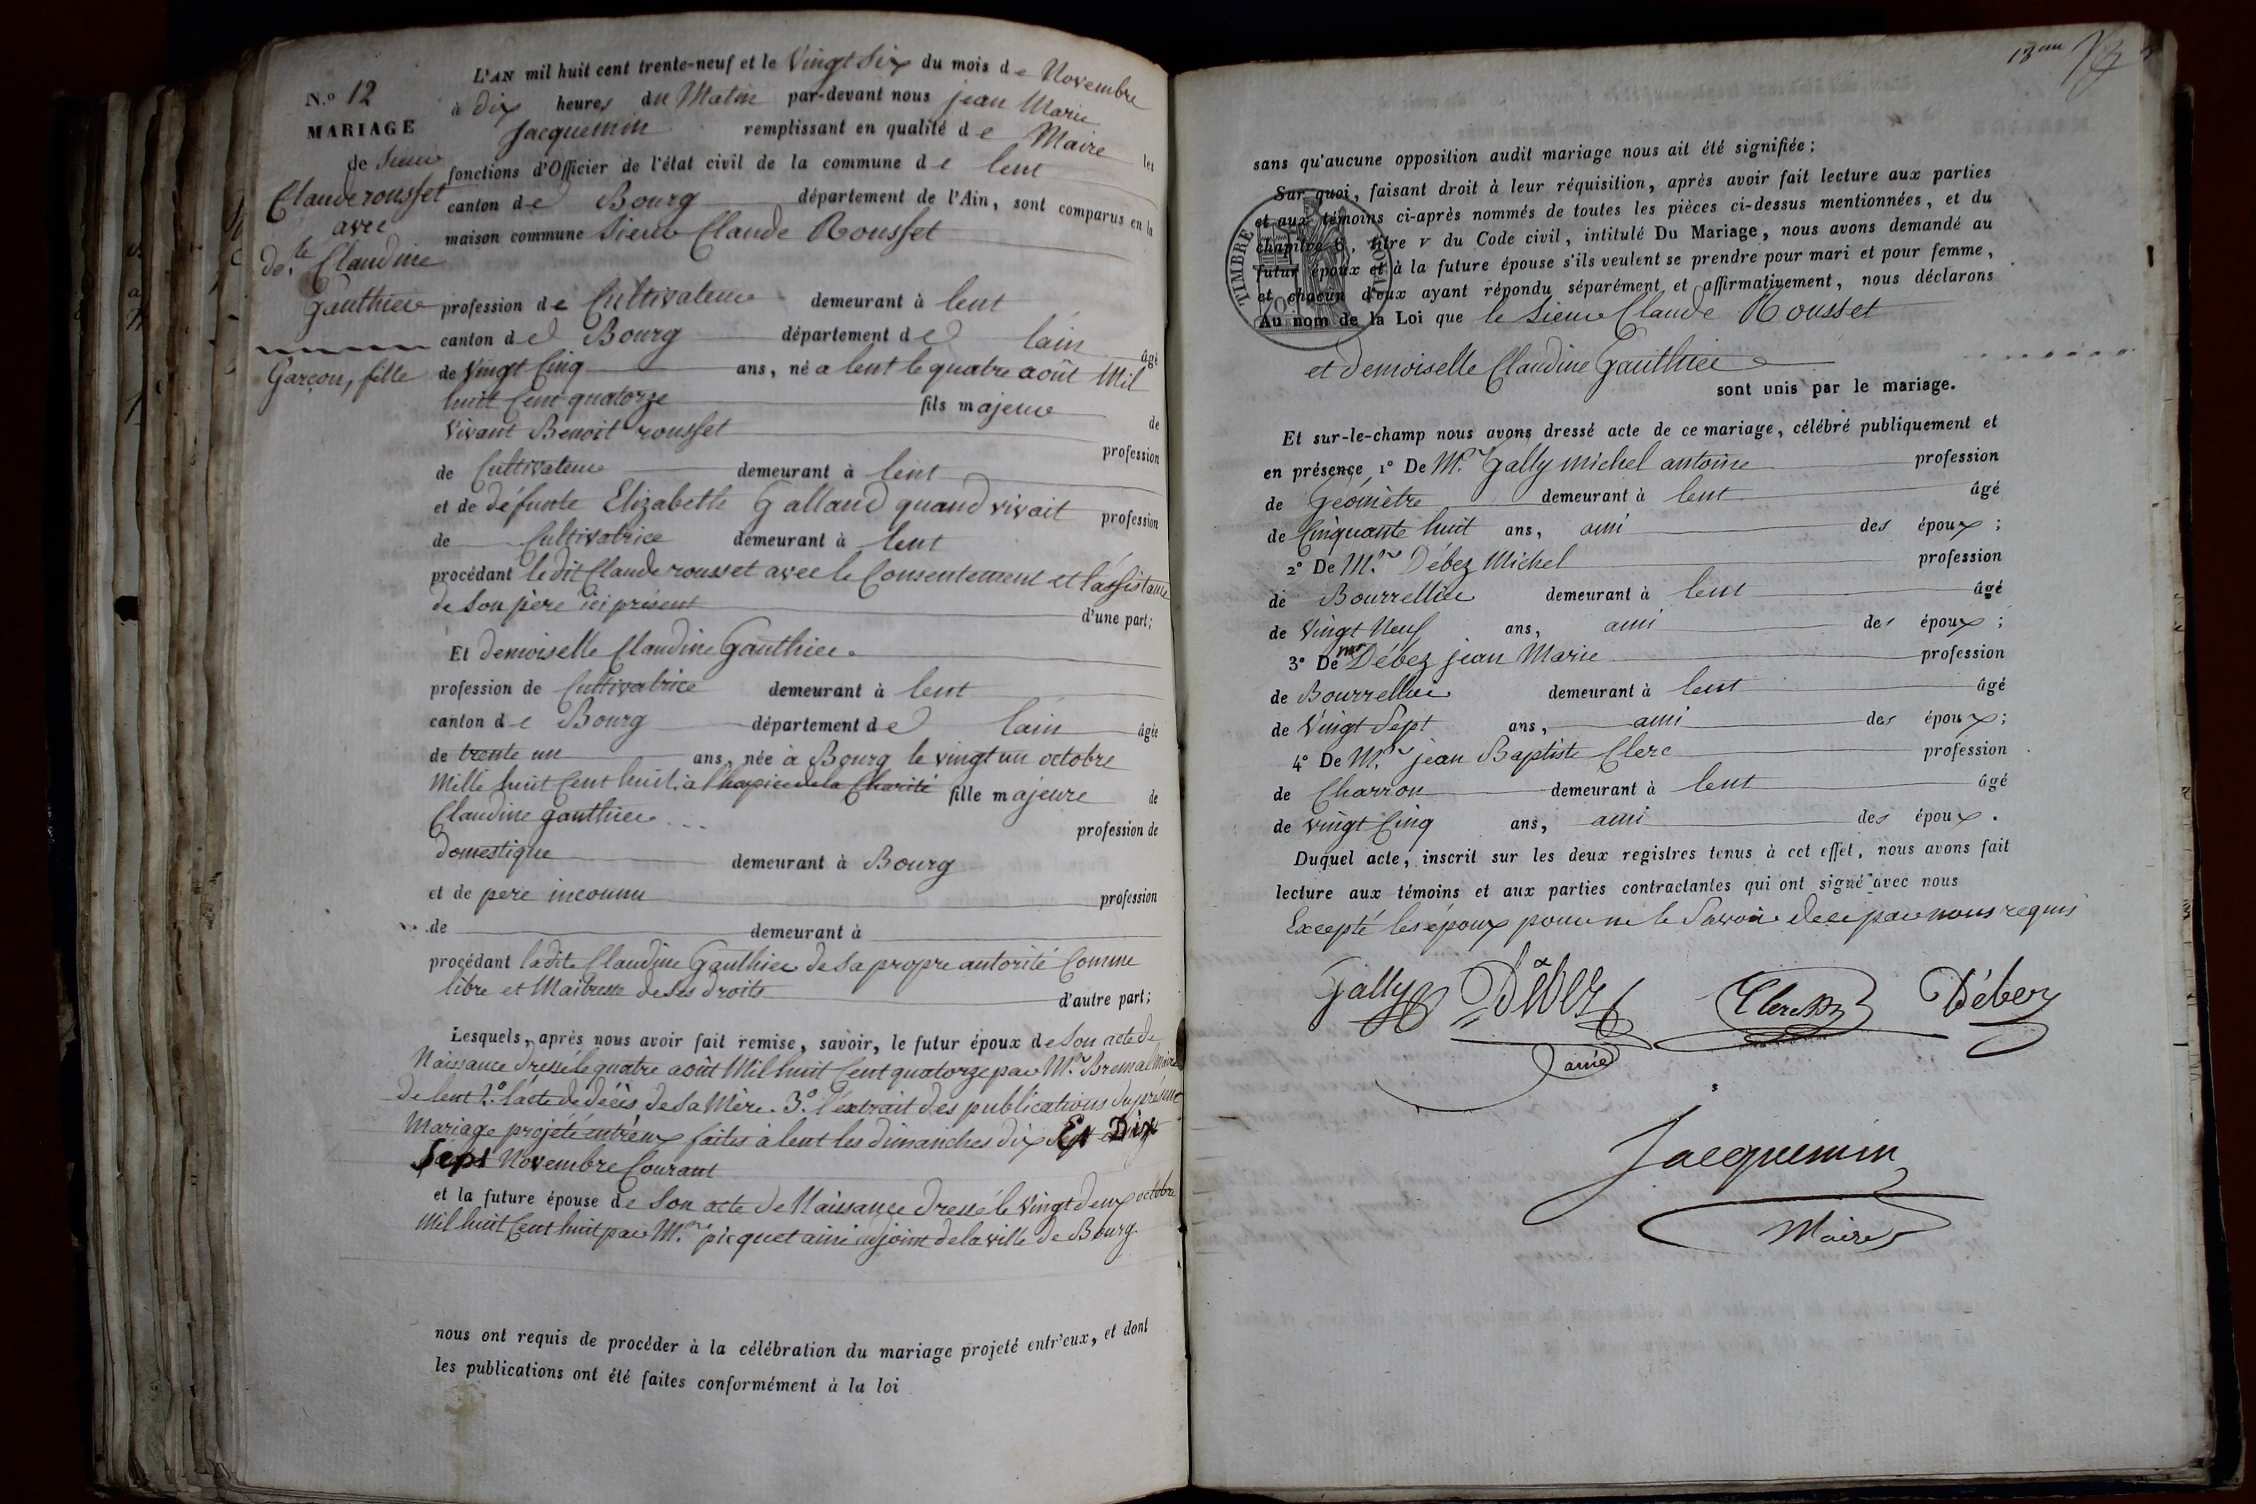 N.o 12
MARIAGE
de Sieur
Claude rousset
avec
de.lle Claudine
Gauthier
Garçon, fille
L'AN mil huit cent trente-neuf et le Vingt Six du mois de Novembre
à dix heures du Matin par-devant nous jean Marie
Jacquemin remplissant en qualité de Maire les
fonctions d'Officier de l'état civil de la commune de lent
canton de Bourg département de l'Ain, sont comparus en la
maison commune Sieur Claude Rousset
profession de Cultivateur demeurant à lent
canton de Bourg département de lain âgé
de Vingt Cinq ans, né a lent le quatre août Mil
huit Cent quatorze fils majeur de
Vivant Benoit rousset profession
de Cultivateur demeurant à lent
et de défunte Elizabeth Galland quand vivait profession
de Cultivatrice demeurant à lent
procédant ledit Claude rousset avec le Consentement et l'assistance
de Son père ici présent d'une part;
Et demoiselle Claudine Gauthier
profession de Cultivatrice demeurant à lent
canton de Bourg département de lain âgée
de trente un ans, née à Bourg le vingt un octobre
Mille huit Cent huit à l'hospice de la Charité fille majeure de
Claudine gauthier profession de
domestique demeurant à Bourg
et de pere inconnu profession
de demeurant à
procédant ladite Claudine Gauthier de Sa propre autorité Comme
libre et Maitresse de Ses droits d'autre part;
Lesquels, après nous avoir fait remise, savoir, le futur époux de Son acte de
Naissance dressé le quatre août Mil huit Cent quatorze par Mr. Maire
de lent 2.o l'acte de décès de Sa Mère. 3.o l'extrait des publications du présent
Mariage projeté entr'eux faites à lent les dimanches dix Et Dix
Sept Novembre Courant
et la future épouse de Son acte de Naissance dressé le Vingt deux octobre
Mil huit Cent huit par Mr. picquet ainé adjoint de la ville de Bourg.
nous ont requis de procéder à la célébration du mariage projeté entr'eux, et dont
les publications ont été faites conformément à la loi
sans qu'aucune opposition audit mariage nous ait été signifiée;
Sur quoi, faisant droit à leur réquisition, après avoir fait lecture aux parties
et aux témoins ci-après nommés de toutes les pièces ci-dessus mentionnées, et du
chapitre 6, titre v du Code civil, intitulé Du Mariage, nous avons demandé au
futur époux et à la future épouse s'ils veulent se prendre pour mari et pour femme,
et chacun d'eux ayant répondu séparément et affirmativement, nous déclarons
Au nom de la Loi que le Sieur Claude Rousset
TIMBRE ROYAL
et demoiselle Claudine Gauthier
sont unis par le mariage.
Et sur-le-champ nous avons dressé acte de ce mariage, célébré publiquement et
en présence 1o De Mr. Gally michel antoine profession
de Géomètre demeurant à lent âgé
de Cinquante huit ans, ami des époux;
2o De Mr. Débez Michel profession
de Bourrellier demeurant à lent âgé
de Vingt Neuf ans, ami des époux;
3o De mr Débez jean Marie profession
de Bourrellier demeurant à lent âgé
de Vingt Sept ans, ami des époux;
4o De Mr. jean Baptiste Clerc profession
de Charron demeurant à lent âgé
de vingt Cinq ans, ami des époux.
Duquel acte, inscrit sur les deux registres tenus à cet effet, nous avons fait
lecture aux témoins et aux parties contractantes qui ont signé avec nous
Excepté les époux pour ne le Savoir de ce par nous requis
Gally Débez Clerc Débez
ainé
Jacquemin
Maire